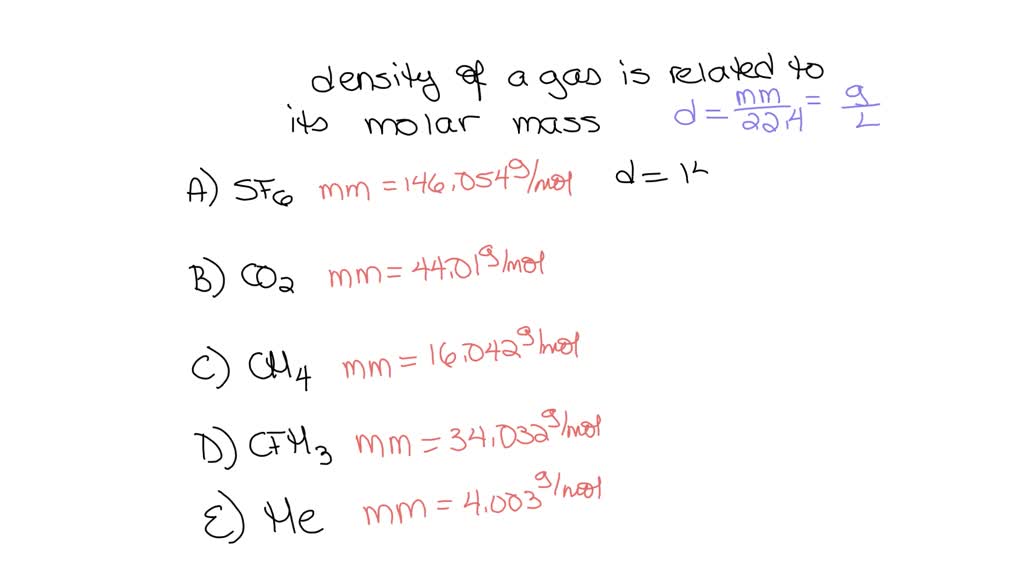 density of a gas is related to
its molar mass d = mm/22.4 = g/L
A) SF6 mm = 146.054 g/mol d = 14
B) CO2 mm = 44.01 g/mol
C) CH4 mm = 16.042 g/mol
D) CFH3 mm = 34.032 g/mol
E) He mm = 4.003 g/mol